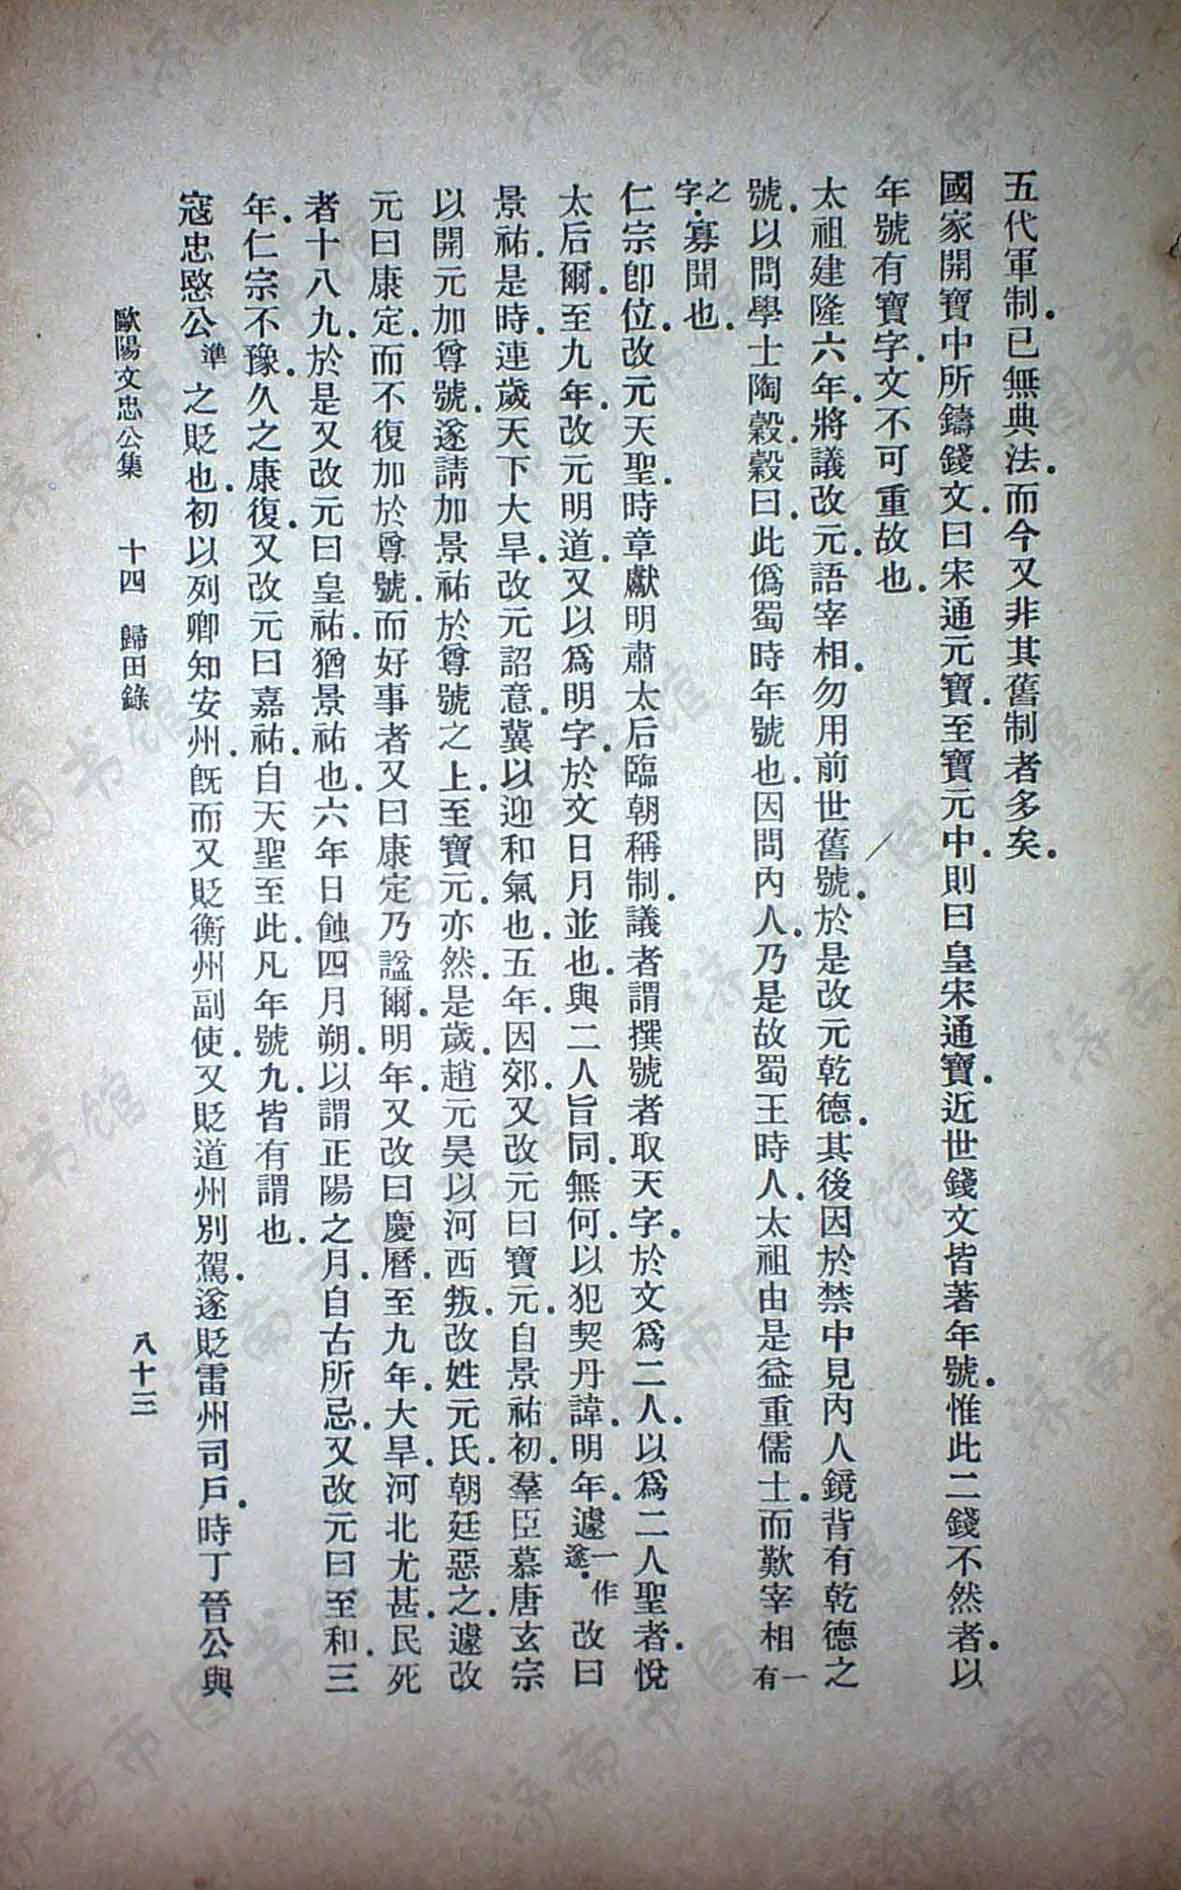 五代軍制．已無典法．而今又非其舊制者多矣．
國家開寶中所鑄錢文．曰宋通元寶．至寶元中．則曰皇宋通寶．近世錢文皆著年號．惟此二錢不然者．以
年號有寶字．文不可重故也．
太祖建隆六年．將議改元．語宰相．勿用前世舊號．於是改元乾德．其後因於禁中見內人鏡背有乾德之
號．以問學士陶穀．穀曰．此僞蜀時年號也．因問內人．乃是故蜀王時人．太祖由是益重儒士．而歎宰相一有
之字．寡聞也．
仁宗卽位．改元天聖．時章獻明肅太后臨朝稱制．議者謂撰號者取天字．於文爲二人．以爲二人聖者．悅
太后爾．至九年．改元明道．又以爲明字．於文日月並也．與二人旨同．無何．以犯契丹諱．明年．遽一作遂．改曰
景祐．是時．連歲天下大旱．改元詔意．冀以迎和氣也．五年．因郊．又改元曰寶元．自景祐初．羣臣慕唐玄宗
以開元加尊號．遂請加景祐於尊號之上．至寶元．亦然．是歲．趙元昊以河西叛．改姓元氏．朝廷惡之．遽改
元曰康定．而不復加於尊號．而好事者又曰康定乃諡爾．明年．又改曰慶曆．至九年．大旱．河北尤甚．民死
者十八九．於是又改元曰皇祐．猶景祐也．六年日蝕四月朔．以謂正陽之月．自古所忌．又改元曰至和．三
年．仁宗不豫．久之康復．又改元曰嘉祐．自天聖至此．凡年號九．皆有謂也．
寇忠愍公準之貶也．初以列卿知安州．旣而又貶衡州副使．又貶道州別駕．遂貶雷州司戶．時丁晉公與
歐陽文忠公集 十四 歸田錄 八十三
濟南市图书馆